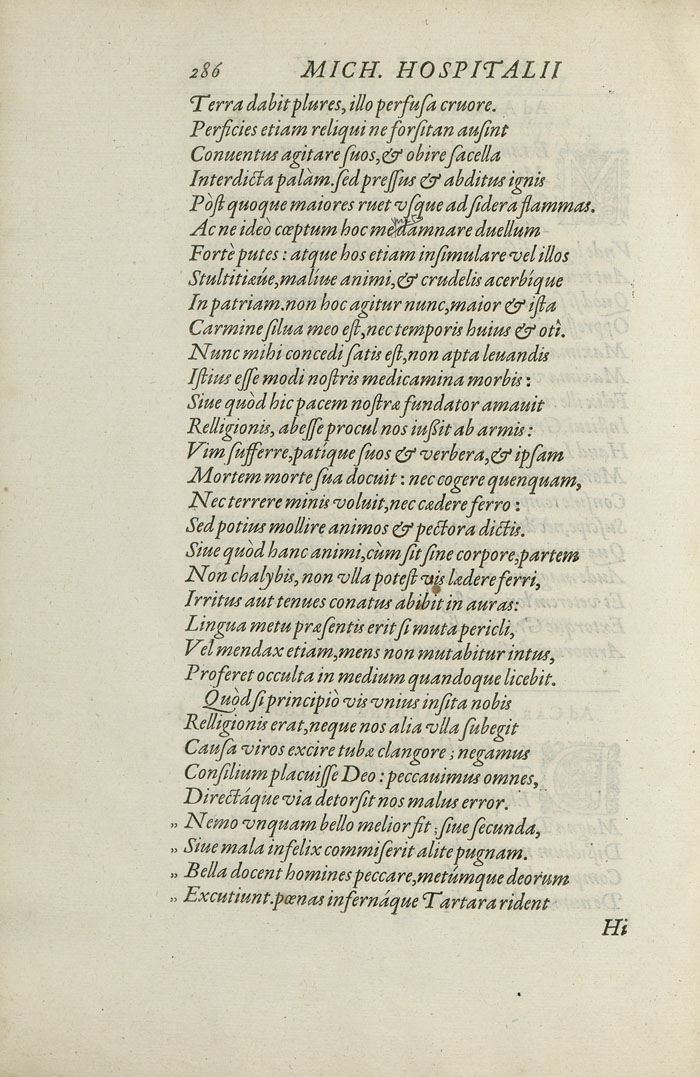 286 MICH. HOSPITALII
Terra dabit plures, illo perfuſa cruore.
Perficies etiam reliqui ne forſitan auſint
Conuentus agitare ſuos, & obire ſacella
Interdicta palàm. ſed preſſus & abditus ignis
Pòſt quoque maiores ruet vſque ad ſidera flammas.
Ac ne ideò cœptum hoc me damnare duellum
Fortè putes : atque hos etiam inſimulare vel illos
Stultitiæúe, malíue animi, & crudelis acerbíque
In patriam. non hoc agitur nunc, maior & iſta
Carmine ſilua meo eſt, nec temporis huius & otî.
Nunc mihi concedi ſatis eſt, non apta leuandis
Iſtius eſſe modi noſtris medicamina morbis :
Siue quòd hic pacem noſtræ fundator amauit
Relligionis, abeſſe procul nos iußit ab armis :
Vim ſufferre, patíque ſuos & verbera, & ipſam
Mortem morte ſua docuit : nec cogere quenquam,
Nec terrere minis voluit, nec cædere ferro :
Sed potius mollire animos & pectora dictis.
Siue quòd hanc animi, cùm ſit ſine corpore, partem
Non chalybis, non vlla poteſt vis lædere ferri,
Irritus aut tenues conatus abibit in auras:
Lingua metu præſentis erit ſi muta pericli,
Vel mendax etiam, mens non mutabitur intus,
Proferet occulta in medium quandoque licebit.
Quòd ſi principiò vis vnius inſita nobis
Relligionis erat, neque nos alia vlla ſubegit
Cauſa viros excire tubæ clangore ; negamus
Conſilium placuiſſe Deo : peccauimus omnes,
Directáque via detorſit nos malus error.
„ Nemo vnquam bello melior fit ; ſiue ſecunda,
„ Siue mala infelix commiſerit alite pugnam.
„ Bella docent homines peccare, metúmque deorum
„ Excutiunt. pœnas infernáque Tartara rident
Hi